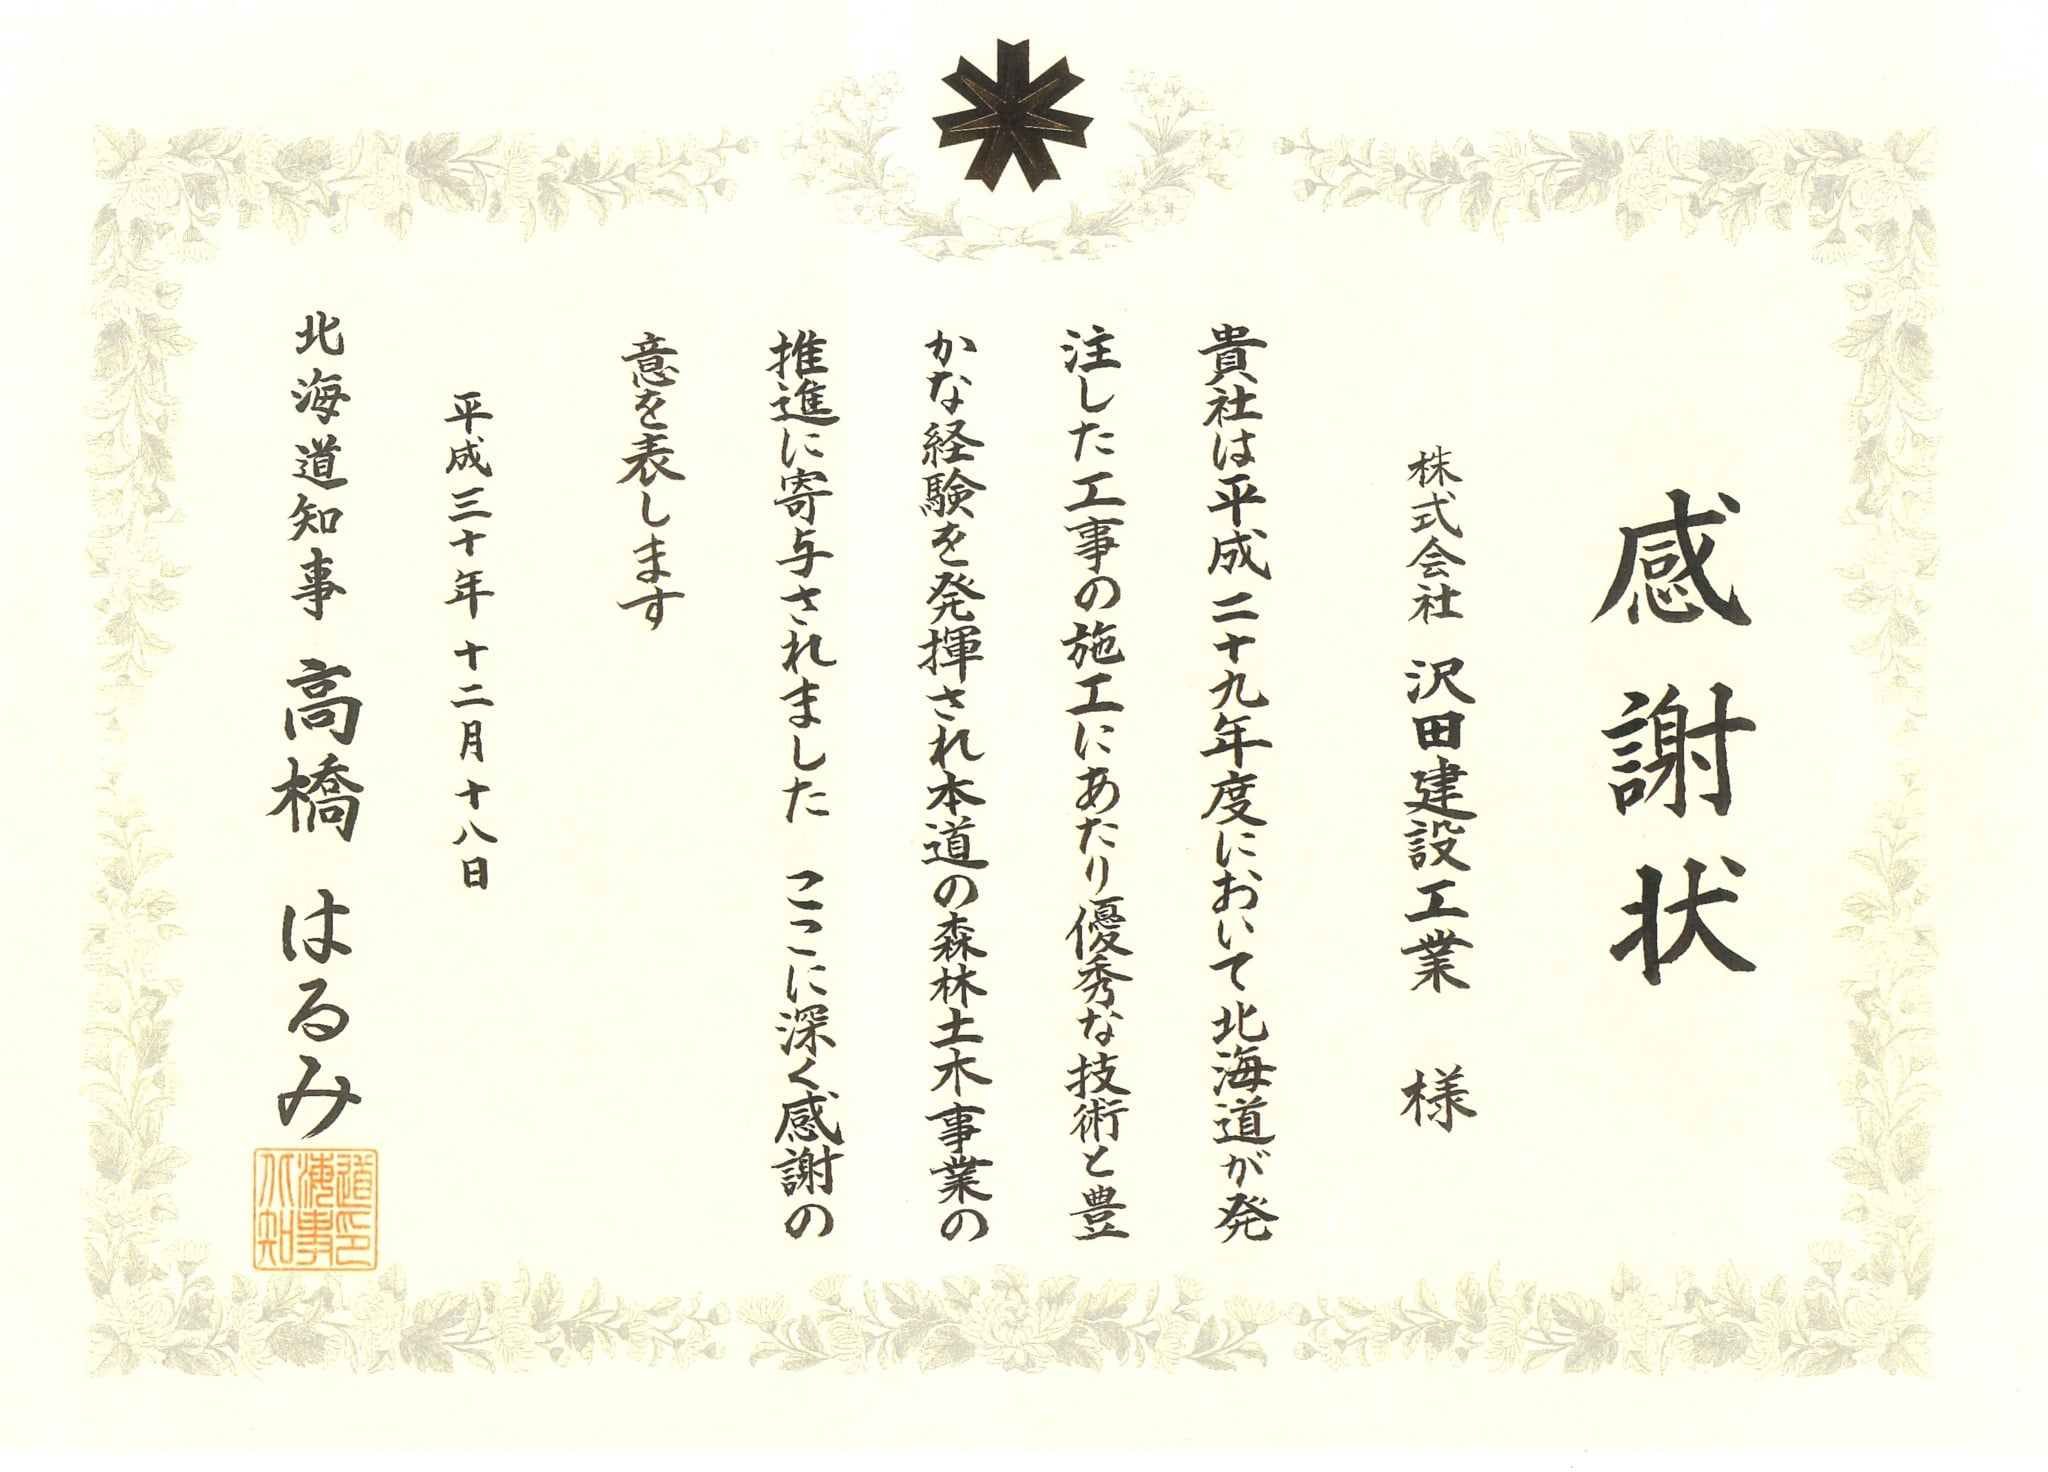 感謝状
株式会社 沢田建設工業 様
貴社は平成二十九年度において北海道が発
注した工事の施工にあたり優秀な技術と豊
かな経験を発揮され本道の森林土木事業の
推進に寄与されました ここに深く感謝の
意を表します
平成三十年十二月十八日
北海道知事 高橋 はるみ
道印
海事
北知